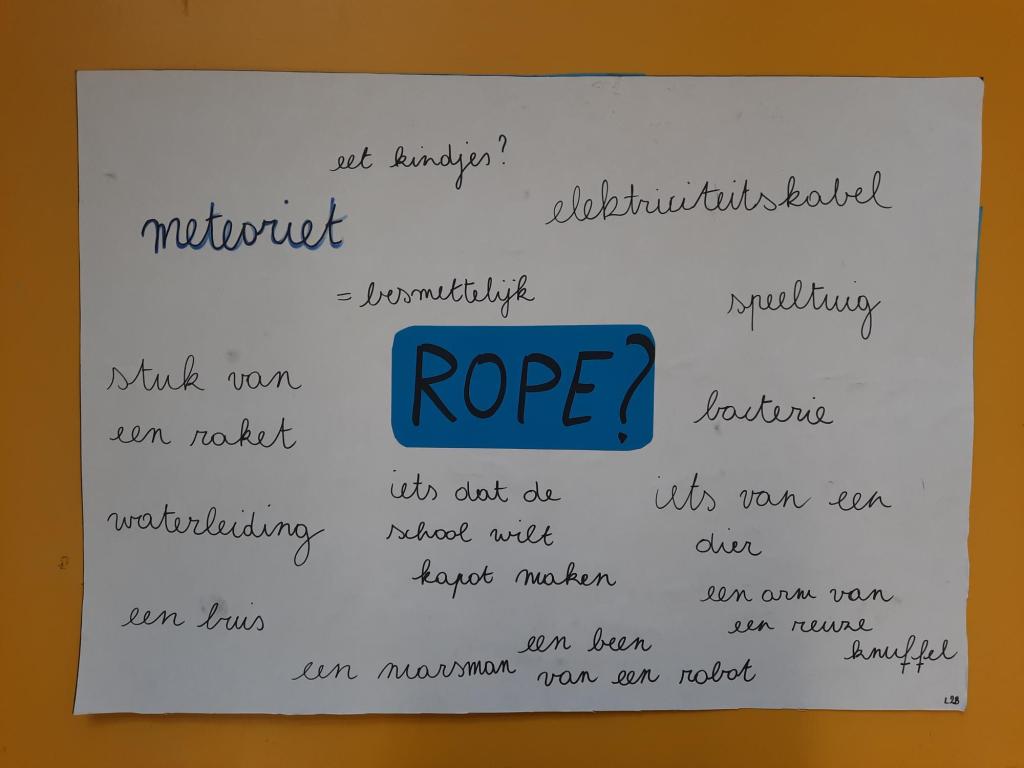 eet kindjes?
meteoriet
elektriciteitskabel
= besmettelijk
speeltuig
ROPE?
stuk van
een raket
bacterie
iets dat de
school wilt
kapot maken
iets van een
dier
waterleiding
een arm van
een reuze
knuffel
een buis
een marsman
een been
van een robot
L2B